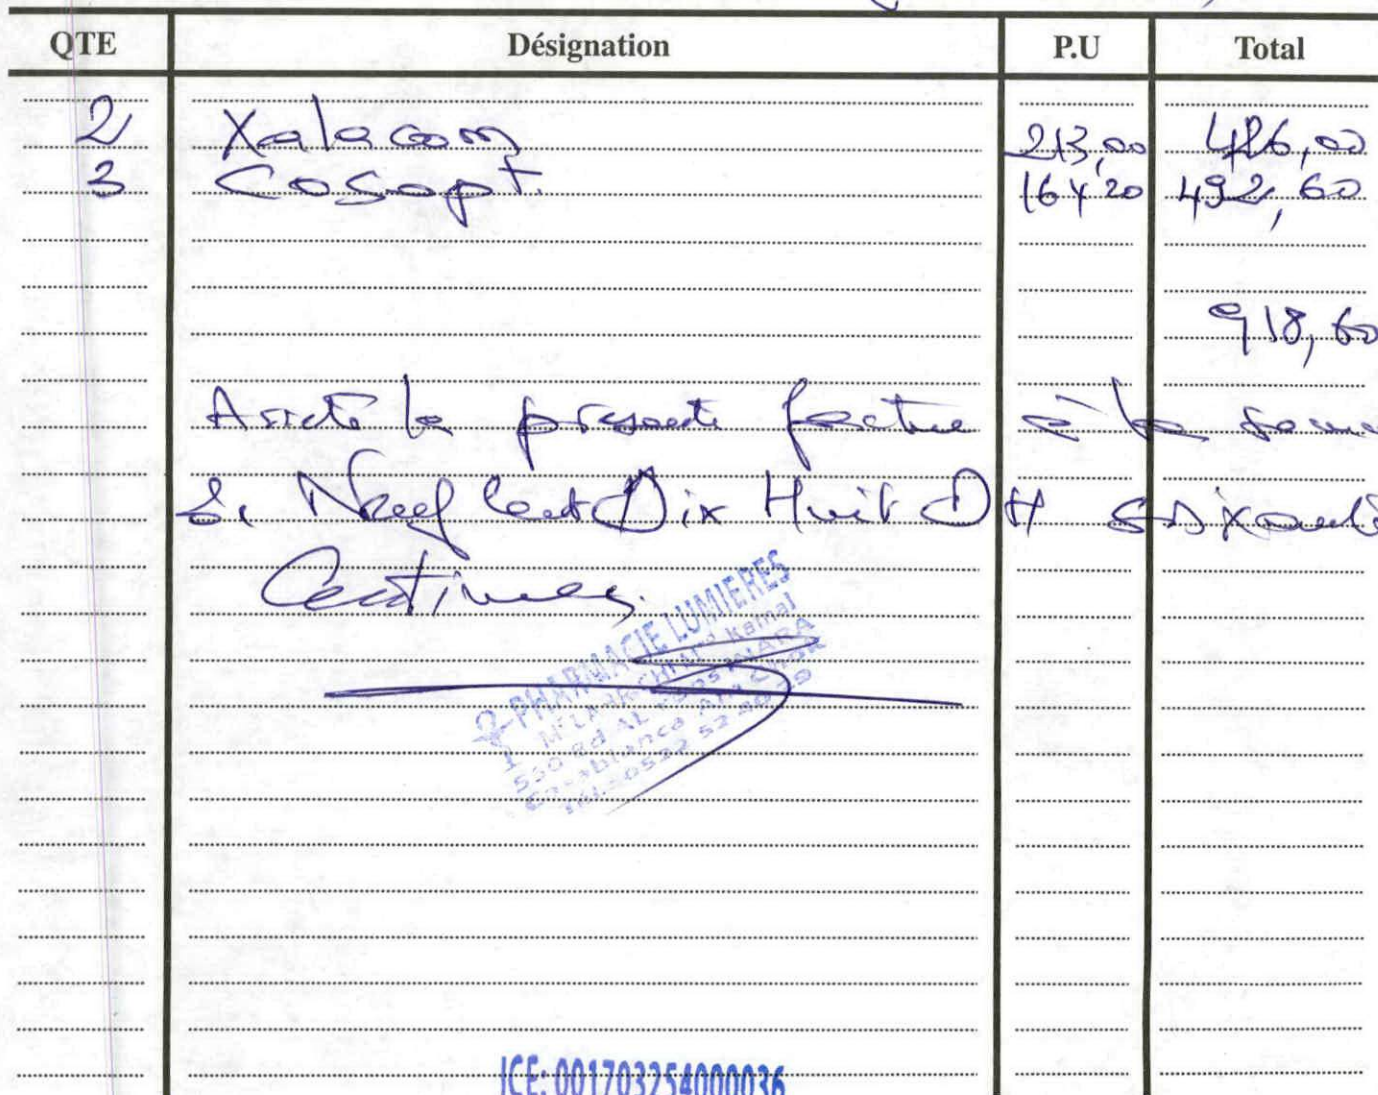 QTE Désignation P.U Total
2 Xalacom 213,00 426,00
3 Cosopt. 164,20 492,60
918,60
Arrêté la présente facture à la somme
de Neuf Cent Dix Huit DH Soixante
Centimes.
PHARMACIE LUMIERES
Kamal
530 Bd AL
Casablanca
ICE: 001703254000036